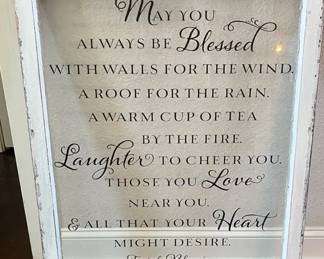 MAY YOU
ALWAYS BE Blessed
WITH WALLS FOR THE WIND,
A ROOF FOR THE RAIN.
A WARM CUP OF TEA
BY THE FIRE.
Laughter TO CHEER YOU.
THOSE YOU Love
NEAR YOU.
& ALL THAT YOUR Heart
MIGHT DESIRE.